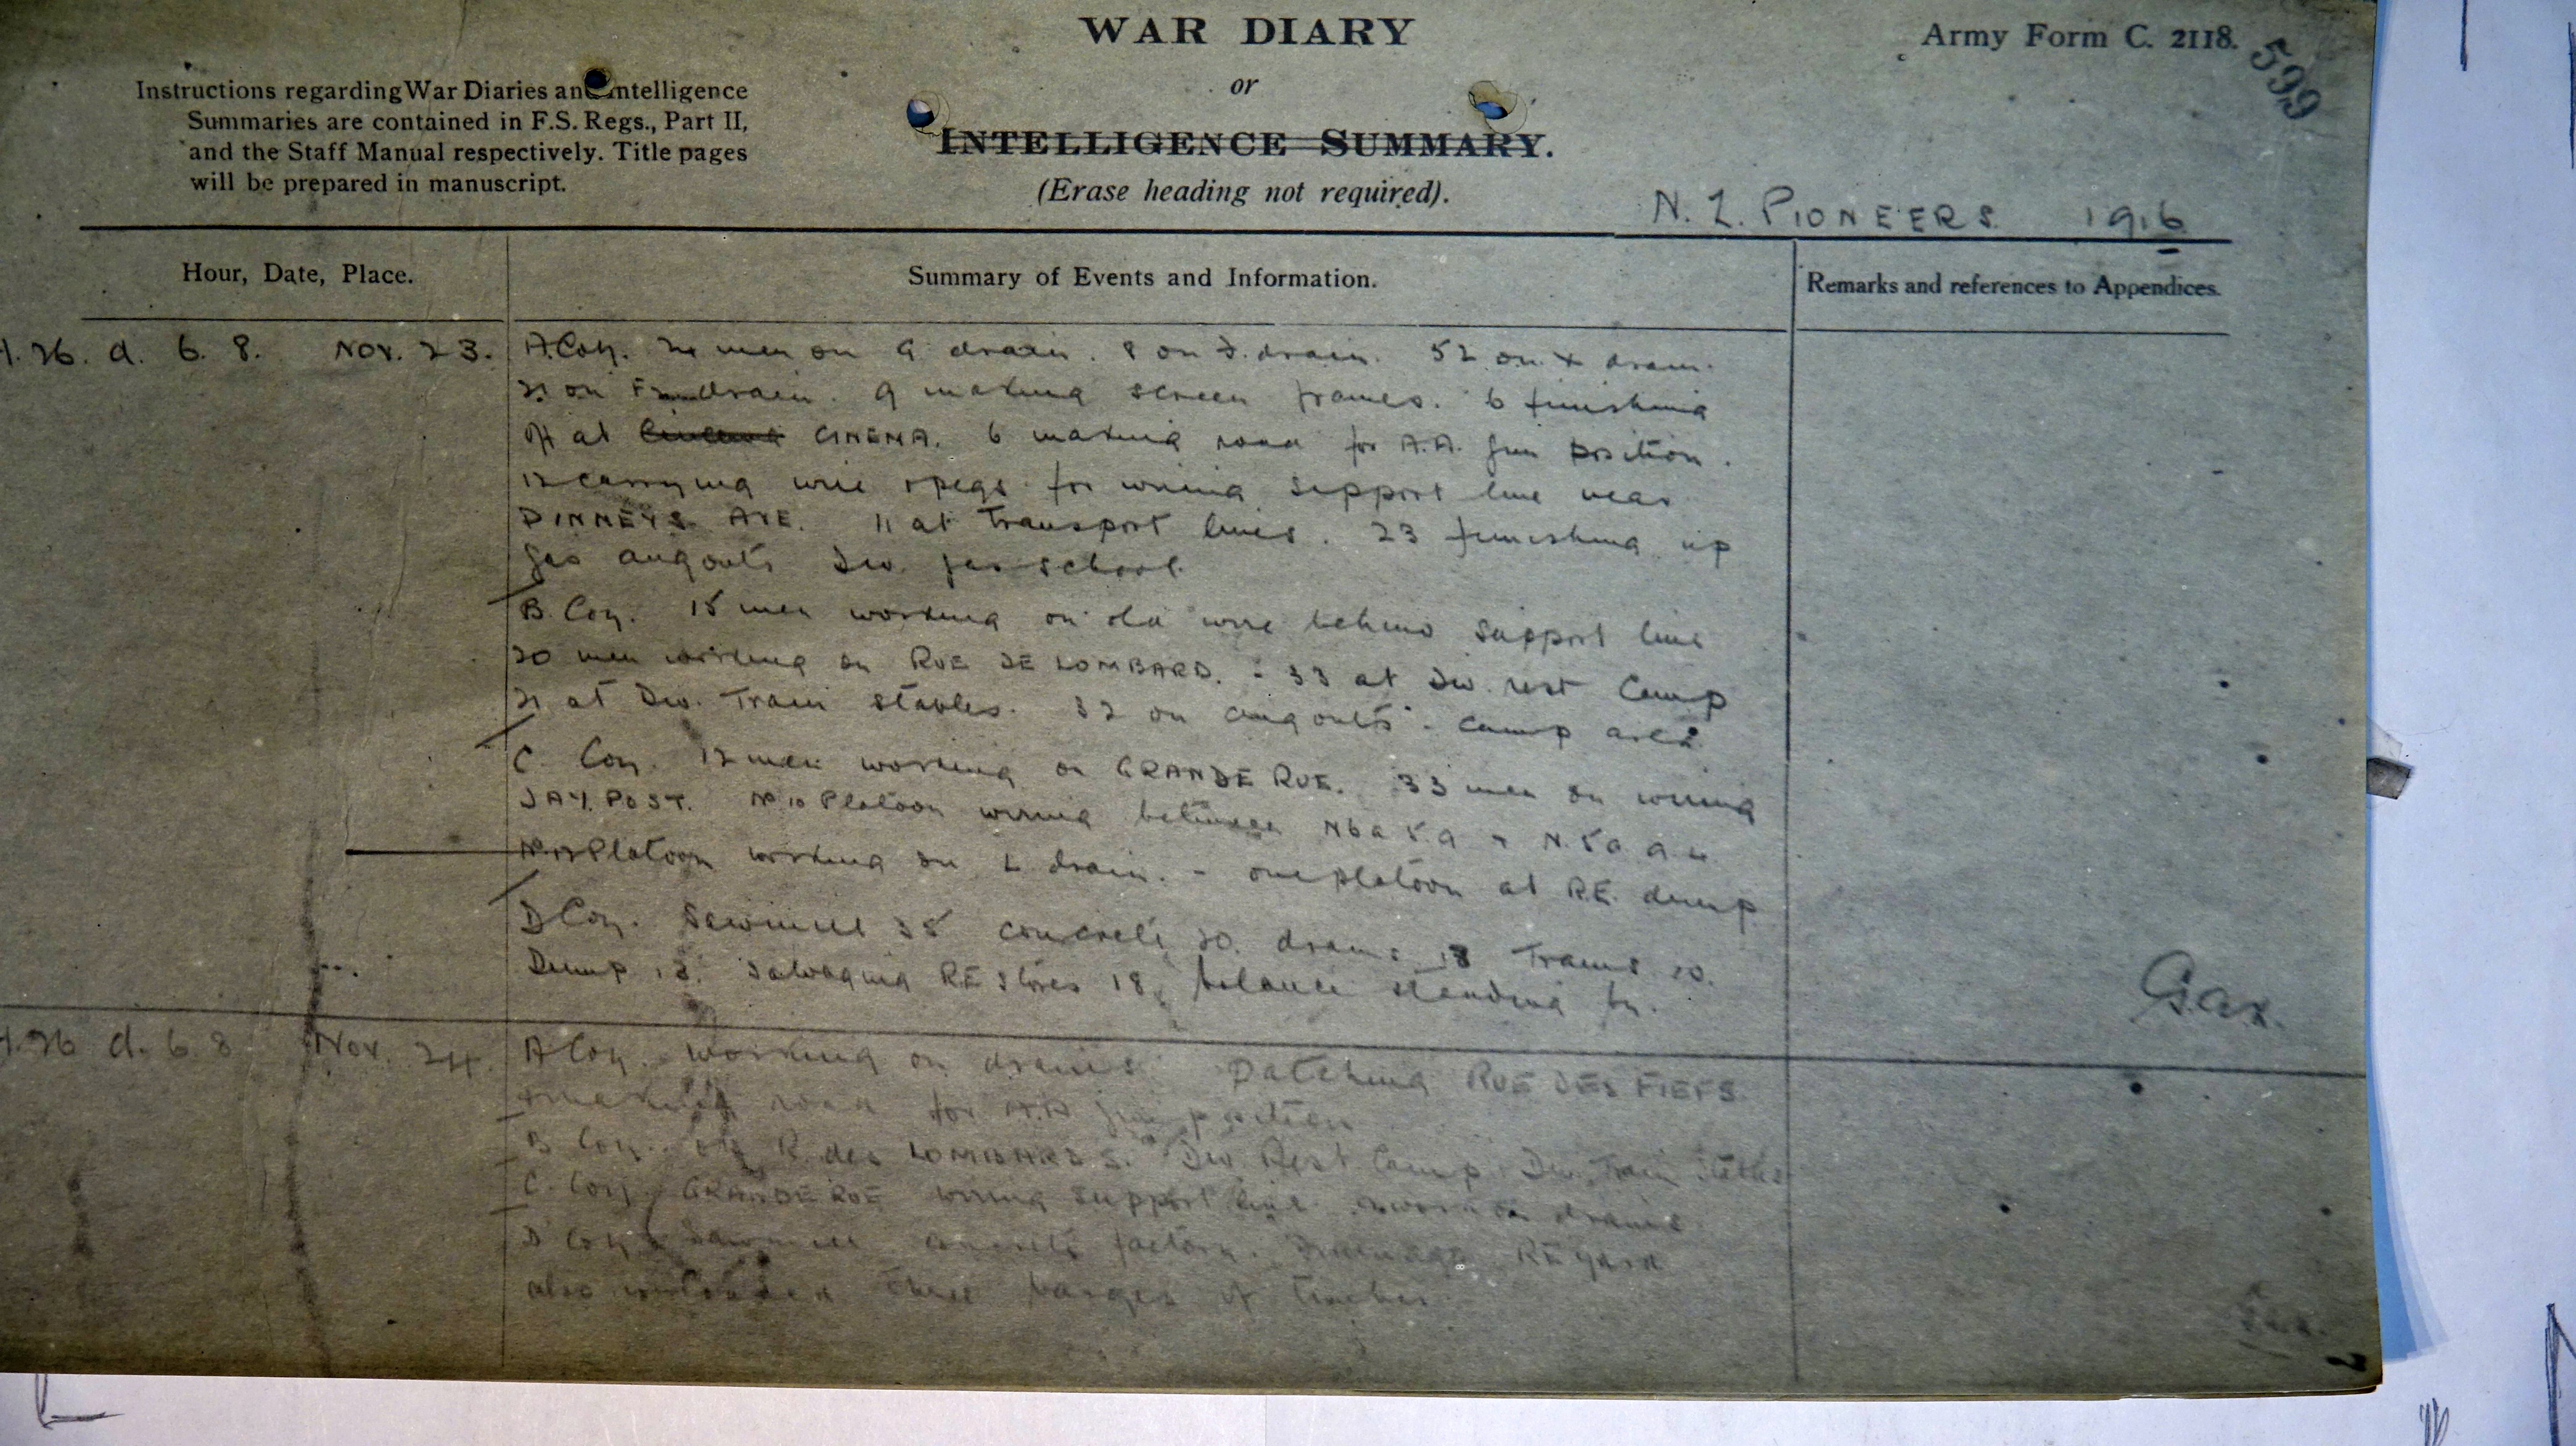 WAR DIARY
or
INTELLIGENCE SUMMARY.
(Erase heading not required).
Army Form C. 2118.
599
Instructions regarding War Diaries and Intelligence
Summaries are contained in F.S. Regs., Part II,
and the Staff Manual respectively. Title pages
will be prepared in manuscript.
N. Z. PIONEERS 1916
Hour, Date, Place.
Summary of Events and Information.
Remarks and references to Appendices.
26. d. 6. 8. Nov. 23.
A.Coy. 24 men on G drain. 8 on J. drain. 52 on drain.
21 on drain. 9 making screen frames. 6 finishing
off at CINEMA. 6 making road for A.A. gun position.
12 carrying wire & pegs for wiring support line near
DINNEYS AVE. 11 at Transport lines. 23 finishing up
gas dugouts Div. gas school.
B. Coy. 15 men working on old wire behind support line
20 men working on RUE DE LOMBARD. - 33 at Div. rest Camp
21 at Div. Train stables. 32 on dugouts - camp area
C. Coy. 12 men working on GRANDE RUE. 33 men on wiring
JAY. POST. No 10 Platoon wiring between N6a 5.9 & N.5a 9.4
Platoon working on L drain. - one platoon at R.E. dump
D Coy. Sawmill 35 concrete 20. drains 18 Trams 10.
Dump 18. Salvaging RE Stores 18, balance standing by.
26 d. 6. 8 Nov. 24.
A Coy. working on drains Patching RUE DES FIEFS
& making road for A.A gun position
B Coy. on R. des LOMBARDS. Div. Rest Camp, Div. Train
C. Coy. GRANDE RUE wiring support line & work on drains
D Coy. Sawmill concrete factory. Drainage RE yard
also unloaded three barges of timber.